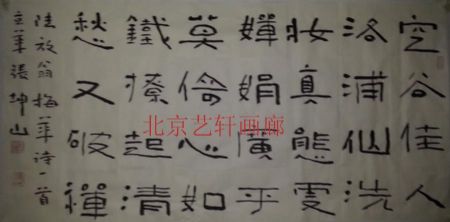 空谷佳人
洛浦仙洗
妝真態更
嬋娟廣平
莫倚心如
鐵撩起清
愁又破禪
陸放翁梅華詩一首
京華張坤山
北京艺轩画廊